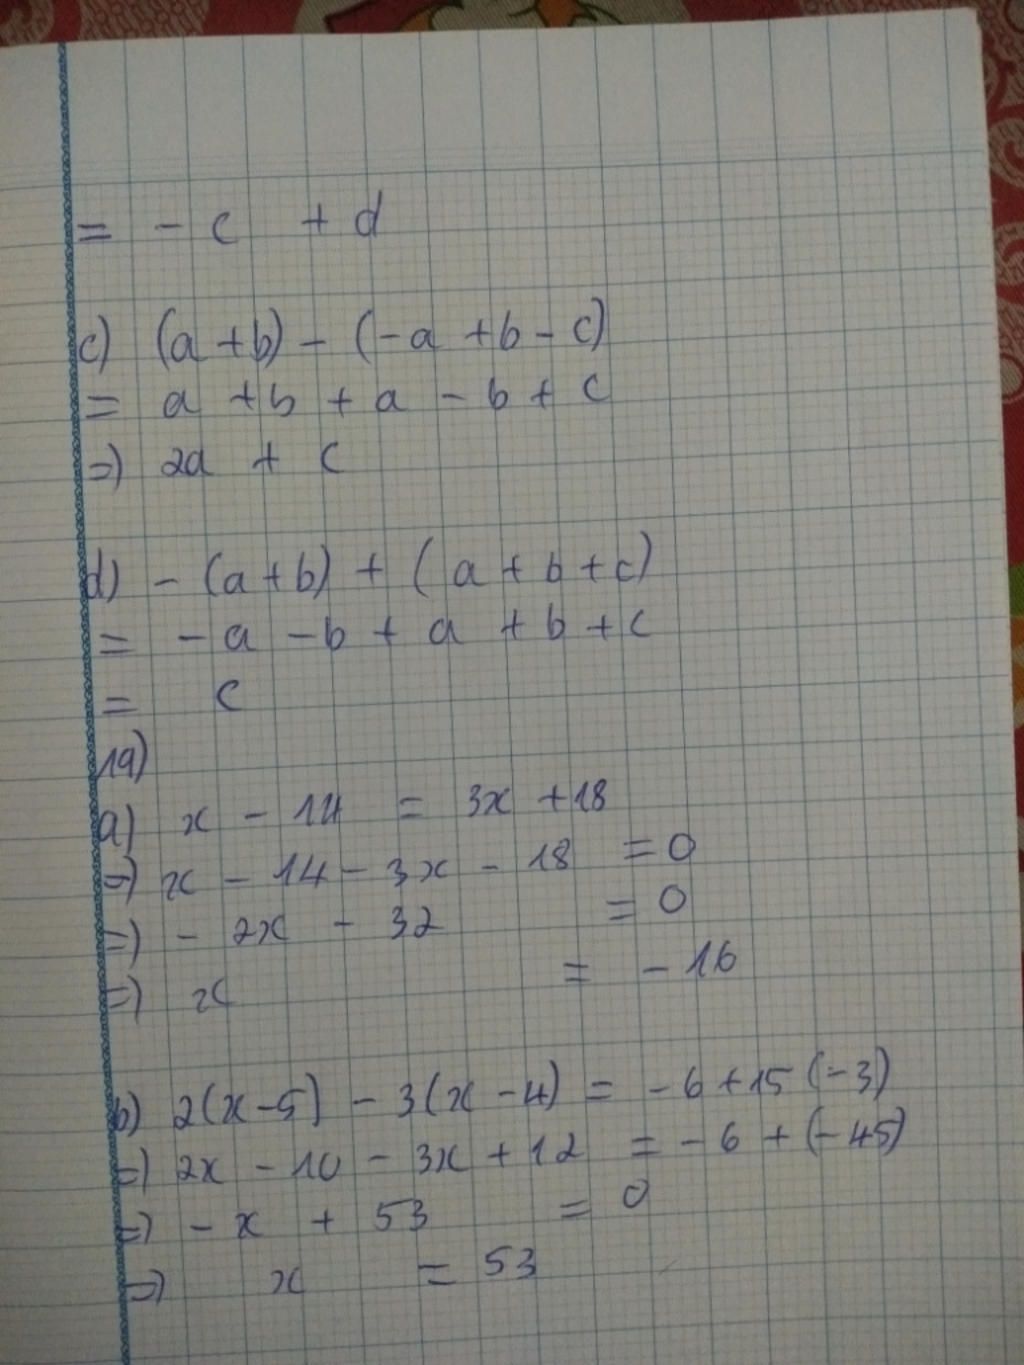 = - c + d
c) (a + b) - (-a + b - c)
= a + b + a - b + c
=) 2a + c
d) - (a + b) + (a + b + c)
= - a - b + a + b + c
= c
19)
a) x - 14 = 3x + 18
=) x - 14 - 3x - 18 = 0
=) - 2x - 32 = 0
=) x = - 16
b) 2(x - 5) - 3(x - 4) = - 6 + 15 (-3)
=) 2x - 10 - 3x + 12 = - 6 + (-45)
=) - x + 53 = 0
=) x = 53